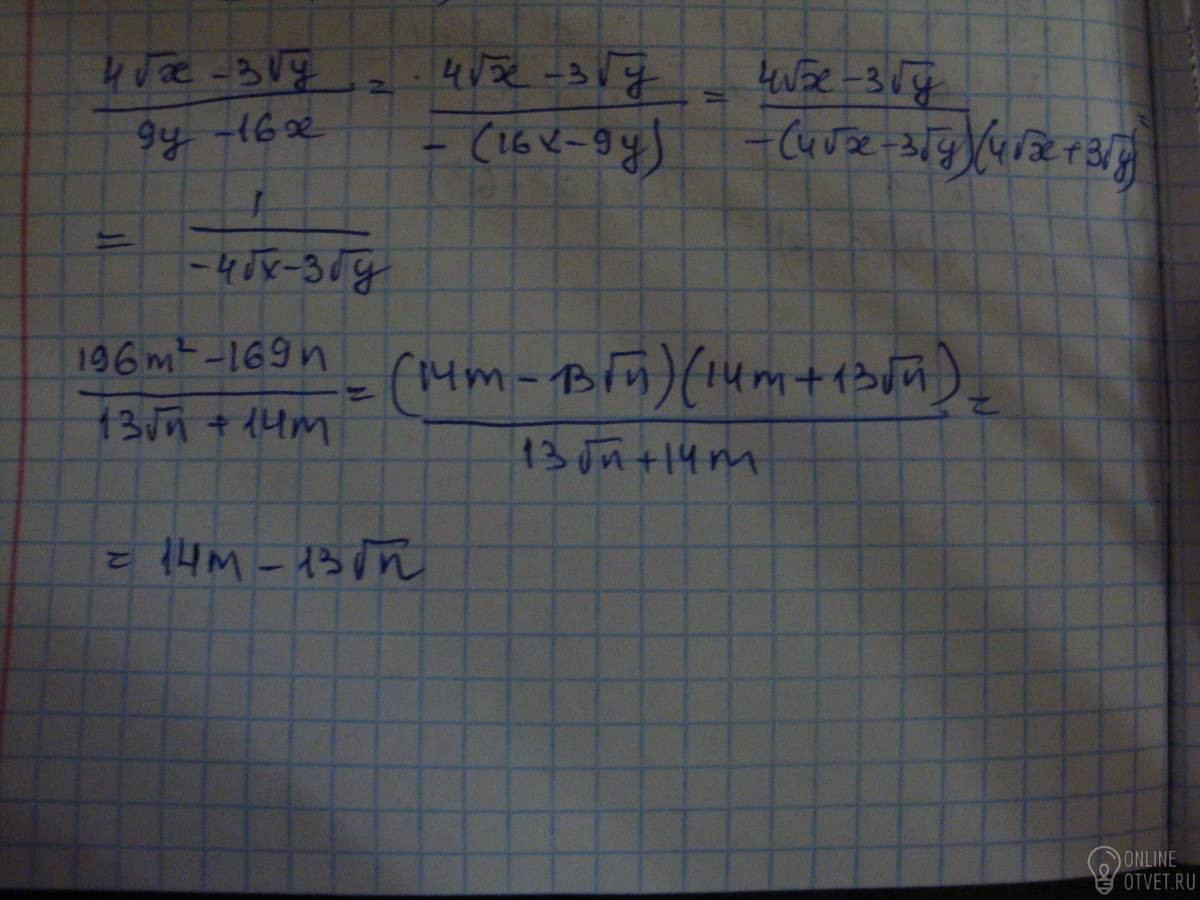 (4√x − 3√y)/(9y − 16x) = (4√x − 3√y)/(−(16x − 9y)) = (4√x − 3√y)/(−(4√x − 3√y)(4√x + 3√y)) =
= 1/(−4√x − 3√y)
(196m² − 169n)/(13√n + 14m) = ((14m − 13√n)(14m + 13√n))/(13√n + 14m) =
= 14m − 13√n
ONLINE
OTVET.RU